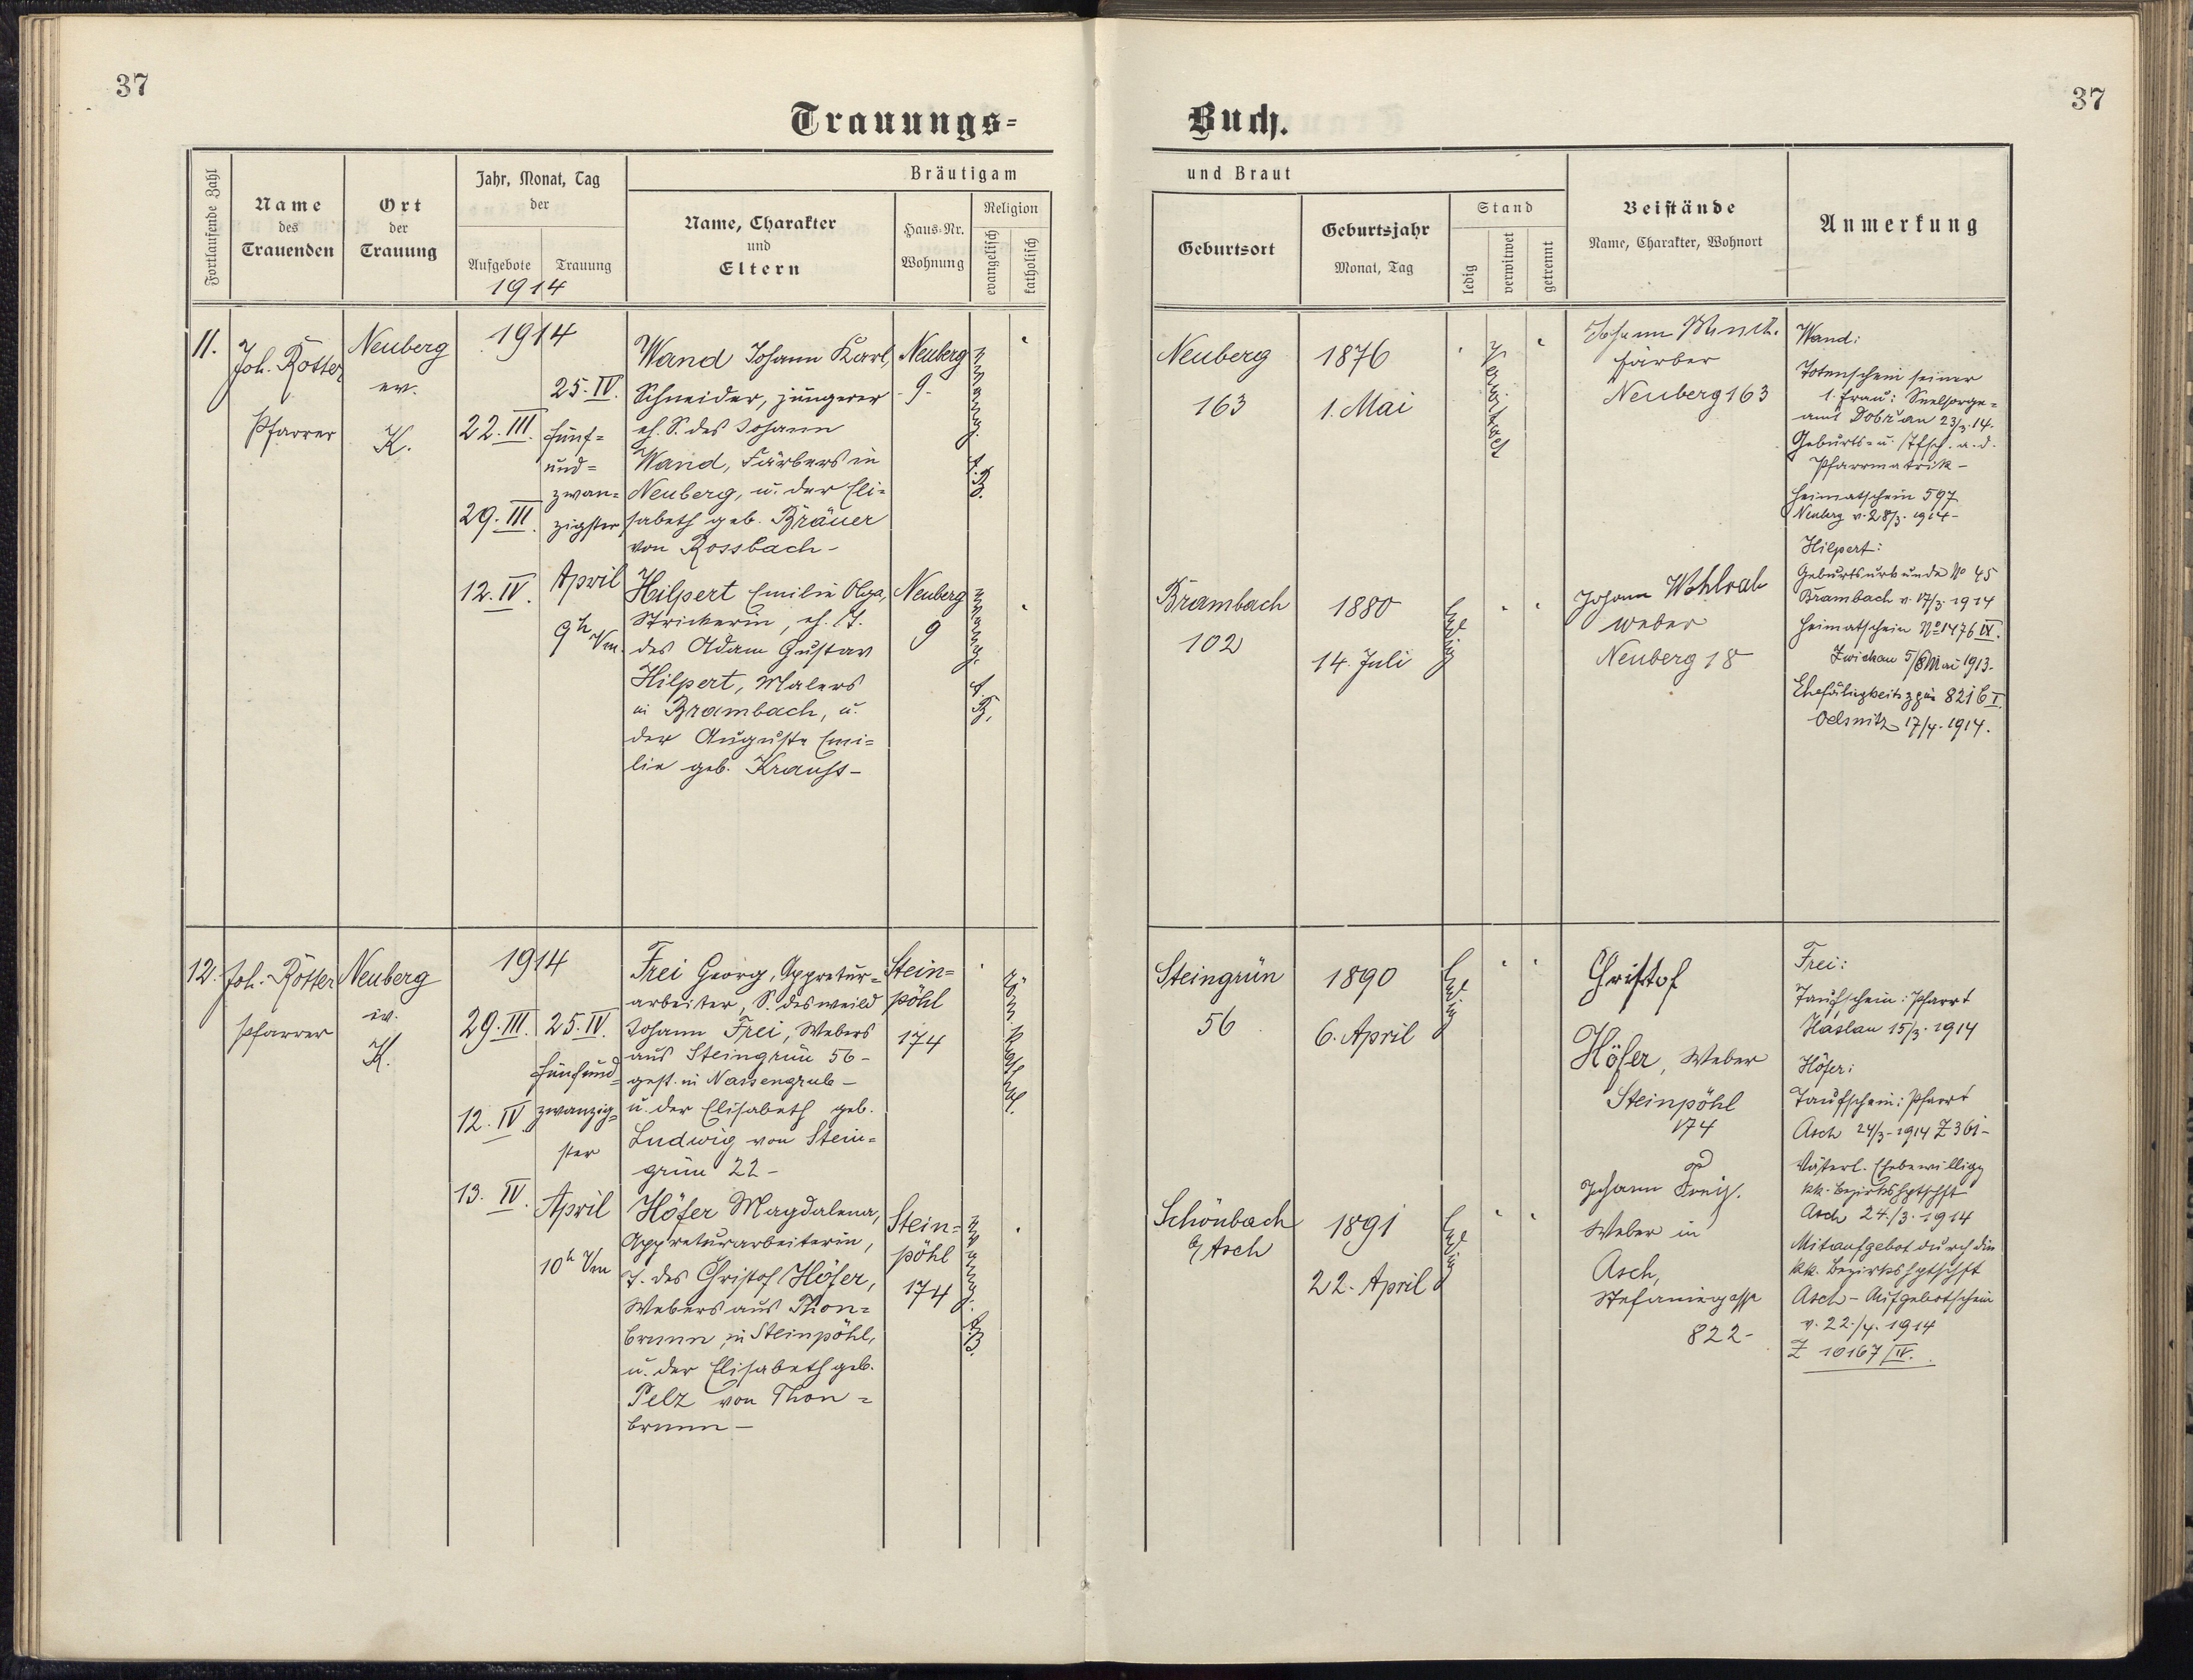 37
37
Trauungs=
Buch.
Fortlaufende Zahl
Name
des
Trauenden
Ort
der
Trauung
Jahr, Monat, Tag
der
Aufgebote
Trauung
1914
Bräutigam
Name, Charakter
und
Eltern
Haus-Nr.
Wohnung
Religion
evangelisch
katholisch
und Braut
Geburtsort
Geburtsjahr
Monat, Tag
Stand
ledig
verwitwet
getrennt
Beistände
Name, Charakter, Wohnort
Anmerkung
11.
Joh. Rösser
Pfarrer
Neuberg
ev.
K.
1914
22. III
29. III.
12. IV.
25. IV.
fünf=
und=
zwan=
zigster
April
9h Vm.
Wand Johann Karl,
Schneider, jüngerer
eh. S. des Johann
Wand, Färbers in
Neuberg, u. der Eli=
sabeth geb. Bräuer
von Rossbach -
Neuberg
9.
evang.
A.B.
Neuberg
163
1876
1. Mai
verwitwet
Johann
Färber
Neuberg 163
Wand:
Totenschein seiner
1. Frau: Seelsorge=
amt Dobřan 23/3. 14.
Geburts- u. a. d.
Pfarrmatrik -
Heimatschein 597
Neuberg v. 28/3. 1914 -
Hilpert Emilie Olga,
Strickerin, eh. T.
des Adam Gustav
Hilpert, Malers
in Brambach, u.
der Auguste Emi=
lie geb. Krauss -
Neuberg
9
evang.
A.B.
Brambach
102
1880
14. Juli
ledig
Johann Wohlrab
Weber
Neuberg 18
Hilpert:
Geburtsurkunde No 45
Brambach v. 17/3. 1914
Heimatschein No 1476 IV.
Zwickau 5/8 Mai 1913.
821 6 I.
Oelsnitz 17/4. 1914.
12.
Joh. Rösser
Pfarrer
Neuberg
ev.
K.
1914
29. III.
12. IV
13. IV.
25. IV.
fünfund=
zwanzig=
ster
April
10h Vm
Frei Georg, Appretur=
arbeiter, S. des weild
Johann Frei, Webers
aus Steingrün 56 -
gest. in Nassengrub -
u. der Elisabeth geb.
Ludwig von Stein=
grün 22 -
Stein=
pöhl
174
röm. kathol.
Steingrün
56
1890
6. April
ledig
Christof
Höfer, Weber
Steinpöhl
174
Frei:
Taufschein: Pfarrt
Haslau 15/3. 1914
Höfer:
Taufschein: Pfarrt
Asch 24/3 - 1914 Z 361 -
Väterl. Ehebewilligg
kk. Bezirkshptschft
Asch 24./3. 1914
Mitaufgebot durch die
kk. Bezirkshptschft
Asch - Aufgebotschein
v. 22./4. 1914
Z 10167/IV.
Höfer Magdalena,
Appreturarbeiterin,
T. des Christof Höfer,
Webers aus Thon=
brunn, in Steinpöhl,
u. der Elisabeth geb.
Pelz von Thon=
brunn -
Stein=
pöhl
174
evang.
A.B.
Schönbach
b/ Asch
1891
22. April
ledig
Johann
Weber in
Asch,
Stefaniegasse
822 -